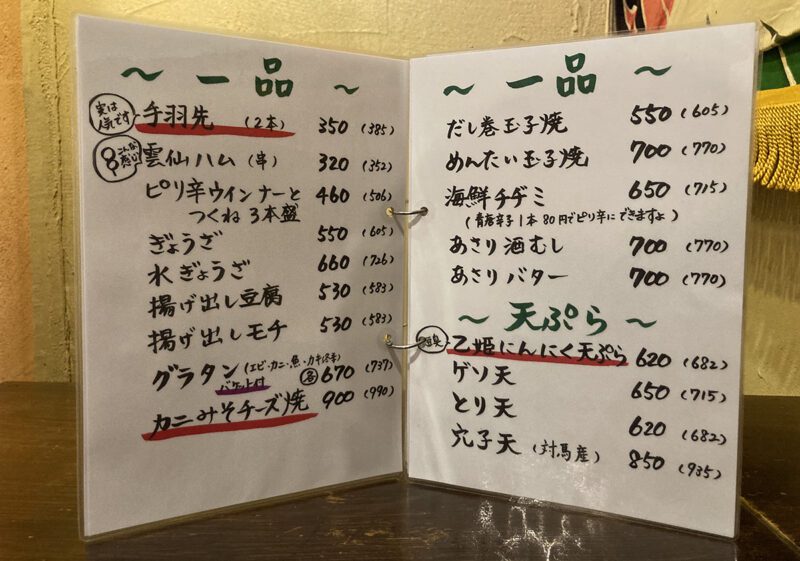 ～ 一品 ～
実は人気です
手羽先 (2本) 350 (385)
こんな感じ
雲仙ハム (串) 320 (352)
ピリ辛ウインナーと
つくね3本盛 460 (506)
ぎょうざ 550 (605)
水ぎょうざ 660 (726)
揚げ出し豆腐 530 (583)
揚げ出しモチ 530 (583)
グラタン (エビ・カニ・魚・カキ(冬季) 各 670 (737)
バケット付
カニみそチーズ焼 900 (990)
～ 一品 ～
だし巻玉子焼 550 (605)
めんたい玉子焼 700 (770)
海鮮チヂミ 650 (715)
(青唐辛子1本80円でピリ辛にできますよ)
あさり酒むし 700 (770)
あさりバター 700 (770)
～ 天ぷら ～
乙姫にんにく天ぷら 620 (682)
ゲソ天 650 (715)
とり天 620 (682)
穴子天 (対馬産) 850 (935)